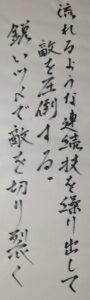 流れるような連続技を繰り出して
敵を圧倒する。
鋭いツメで敵を切り裂く